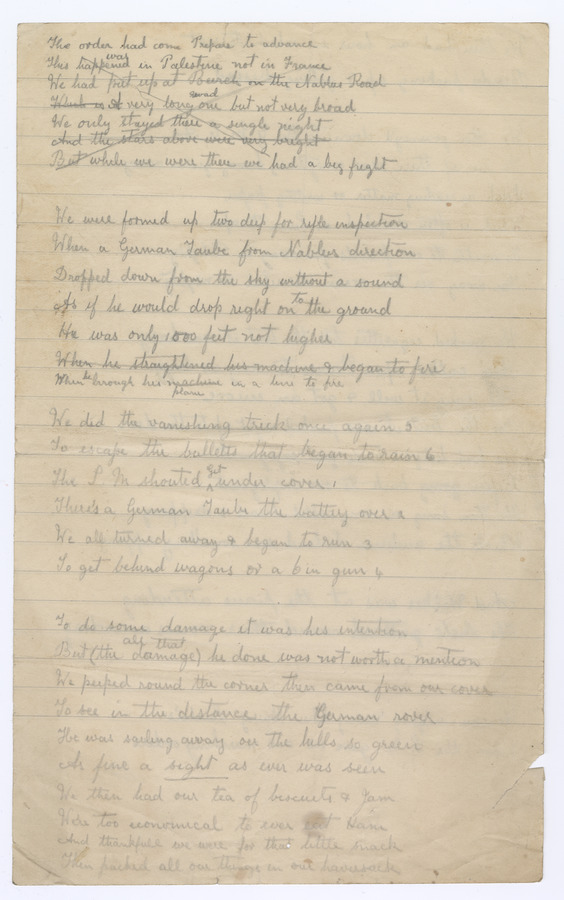 The order had come Prepare to advance
was
This happened in Palestine not in France
We had put up at Bureh on the Nablus Road
road
Which is A very long one but not very broad
We only stayed there a single night
And the stars above were very bright
But while we were there we had a big fright
We were formed up two deep for rifle inspection
When a German Taube from Nablus direction
Dropped down from the sky without a sound
to
As if he would drop right on the ground
He was only 1000 feet not higher
When he straightened his machine & began to fire
When he brough his machine in a line to fire
plane
We did the vanishing trick once again 5
To escape the bullets that began to rain 6
get
The S M shouted under cover 1
There's a German Taube the battery over 2
We all turned away & began to run 3
To get behind wagons or a 6 in gun 4
To do some damage it was his intention
all that
But (the damage) he done was not worth a mention
We peeped round the corner then came from our cover
To see in the distance the German rover
He was sailing away oer the hills so green
As fine a sight as ever was seen
We then had our tea of biscuits & Jam
We're too economical to ever eat Ham
And thankfull we were for that little snack
Then packed all our things in our haversack